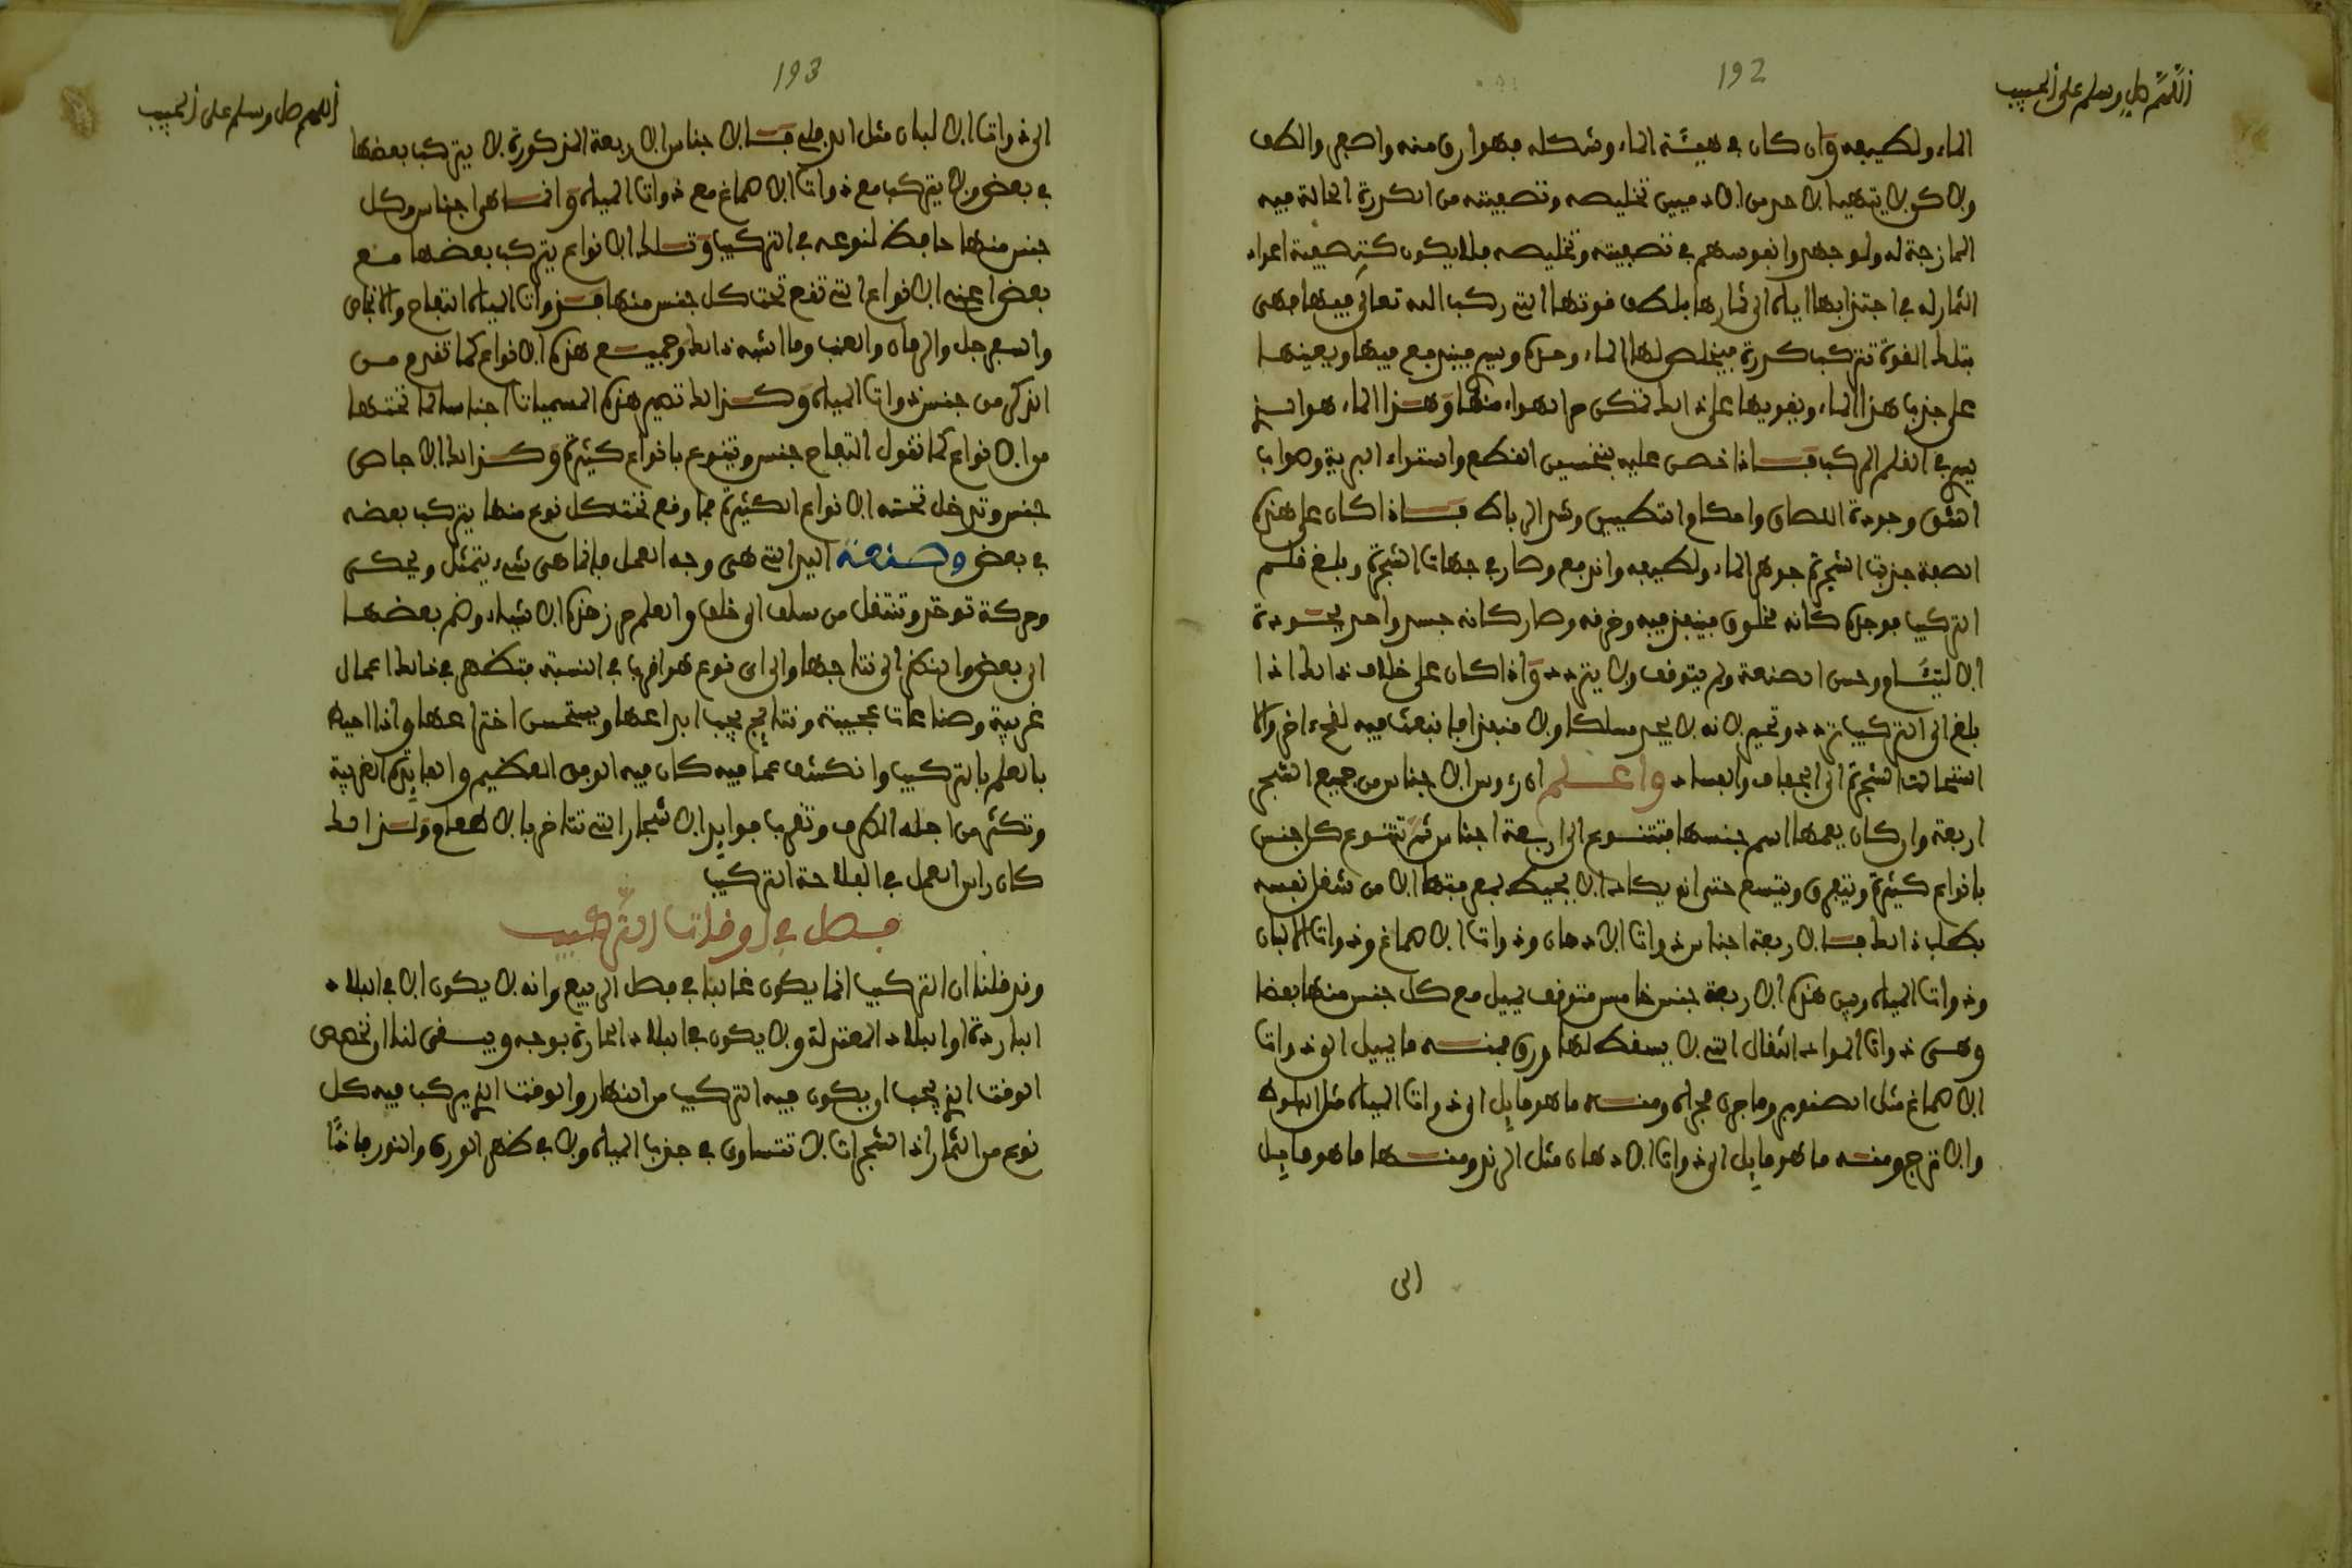 192
اللهم صل وسلم على الحبيب
الماء ولطيفه وان كان في هيئة الماء وشكله فهو ارق منه واصفى والطف
ولاكن لا يتهيا لاحد من الادميين تخليصه وتصفيته من الكدرة الحالة فيه
الممازجة له ولو جهدوا نفوسهم في تصفيته وتخليصه فلا يكون كتصفية اعواد
الثمار له في اجتذابها اياه الى ثمارها بلطف قوتها التي ركب الله تعالى فيها فهي
بتلك القوة تترك كدرة فيخلص لها الماء وحده وبه فيندفع فيها ويعينها
على جذب هذا الماء ويقويها على ذلك تمكن الهواء منها وهذا الماء هو الذي
يسري في القلم المركب فاذا خص عليه بتحسين القطع واستواء البرية وهواب
الشق وجودة اللصاق واحكام التطيين وشد الرباط فاذا كان على هذه
الصفة جذبت الشجرة جوهر الماء ولطيفه واندفع وصار في جهات الشجرة وبلغ قلم
التركيب فوجده كانه مخلوق فينفذ فيه وخرقه وصار كانه جسد واحد بجودة
الالتيام وحسن الصنعة ولم يتوقف ولا يتردد واذا كان على خلاف ذلك اذا
بلغ الى التركيب تردد وتحير لانه لا يجد مسلكا ولا منفذا فانبعث فيه لقحا اخر والا
استحالت الشجرة الى الجفاف والفساد واعلم ان رءوس الاجناس من جميع الشجر
اربعة وان كان يعمها اسم جنسها فتتنوع الى اربعة اجناس ثم تتنوع كل جنس
بانواع كثيرة ويتفرق ويتسع حتى انه يكاد الا يحيط بمعرفتها الا من شغل نفسه
بطلب ذلك فالاربعة اجناس ذوات الادهان وذوات الاصماغ وذوات الالبان
وذوات المياه وبين هذه الاربعة جنس خامس متوقف يميل مع كل جنس منها بعضا
وهي ذوات المواد الثقال التي لا يسقط لها ورق فمنه ما يميل الى ذوات
الاصماغ مثل الصنوبر وما جرى مجراه ومنه ما هو مايل الى ذوات المياه مثل البلوط
والاترج ومنه ما هو مايل الى ذوات الادهان مثل الرند ومنها ما هو مايل
الى
193
اللهم صل وسلم على الحبيب
الى ذوات الالبان مثل الدفلى فالاجناس الاربعة المذكورة لا يتركب بعضها
في بعض ولا يتركب مع ذوات الاصماغ مع ذوات المياه وانما هي اجناس وكل
جنس منها حافظ لنوعه في التركيب وتلك الانواع يتركب بعضها مع
بعض اعني الانواع التي تقع تحت كل جنس منها فذوات المياه التفاح والانجاص
والسفرجل والرمان والعنب وما اشبه ذلك وجميع هذه الانواع كما تقدم من
الذكر من جنس ذوات المياه وكذلك تصير هذه المسميات اجناسا لما تحتها
من الانواع كما تقول التفاح جنس ويتنوع بانواع كثيرة وكذلك الاجاص
جنس وتدخل تحته الانواع الكثيرة فما وقع تحت كل نوع منها يتركب بعضه
في بعض وصنعة اليد التي هي وجه العمل فانما هي شيء يتمثل ويحكى
وحركة توخذ وتنتقل من سلف الى خلف والعلم حرز هذه الاشياء وضم بعضها
الى بعض والنظر الى نتاجها والى اي نوع هو اقرب في النسبة فتظهر في ذلك اعمال
غريبة وصناعات عجيبة ونتائج يجب ابداعها ويستحسن اختراعها واذا احيط
بالعلم بالتركيب وانكشف عما فيه كان فيه الوفق العظيم والفايدة الغريبة
وتكثر من اجله الطرف وتقرب فوايد الاشجار التي تتاخر بالاطعام ولذلك
كان راس العمل في الفلاحة التركيب
فصل في اوقات التركيب
وقد قلنا ان التركيب انما يكون غالبا في فصل الربيع وانه لا يكون الا في البلاد
الباردة او البلاد المعتدلة ولا يكون في البلاد الحارة بوجه ويبقى لنا ان نخصص
الوقت الذي يجب ان يكون فيه التركيب من النهار والوقت الذي يركب فيه كل
نوع من الثمار اذ الشجرات لا تتساوى في جذب المياه ولا في ظهر الورق والنور فاخا